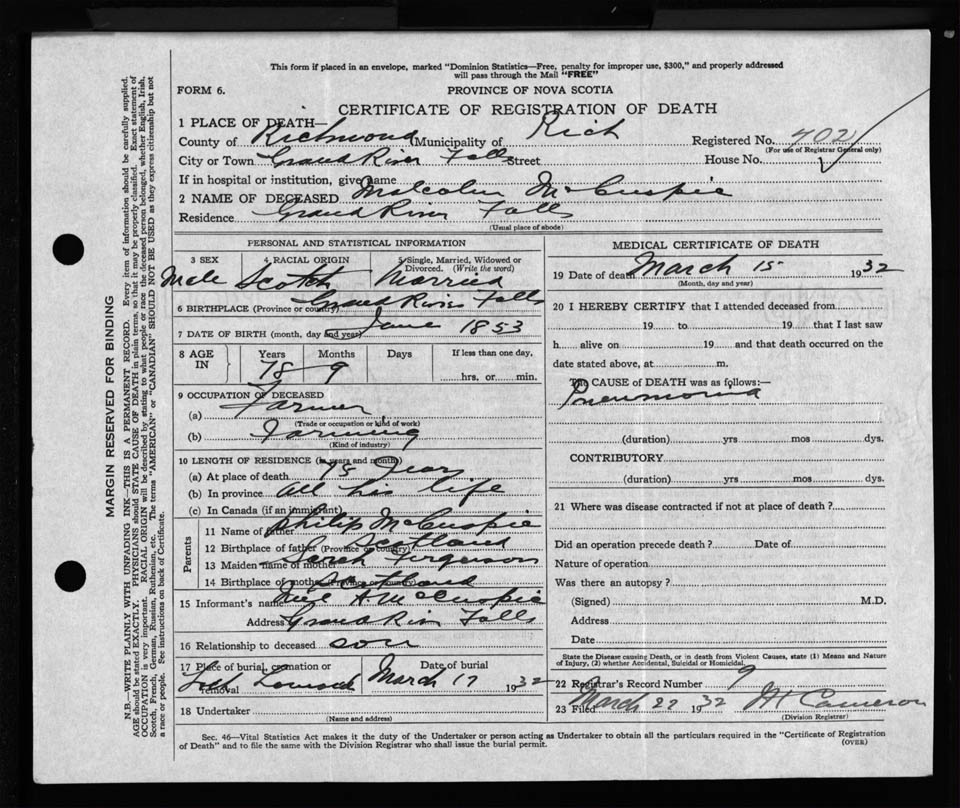 This form if placed in an envelope, marked "Dominion Statistics—Free, penalty for improper use, $300," and properly addressed
will pass through the Mail "FREE"
FORM 6. PROVINCE OF NOVA SCOTIA
CERTIFICATE OF REGISTRATION OF DEATH
1 PLACE OF DEATH—
County of Richmond (Municipality of Rich Registered No. 702
(For use of Registrar General only)
City or Town Grand River Falls Street House No.
If in hospital or institution, give name
2 NAME OF DECEASED Malcolm McCuspie
Residence Grand River Falls
(Usual place of abode)
PERSONAL AND STATISTICAL INFORMATION
3 SEX 4 RACIAL ORIGIN 5 Single, Married, Widowed or
Divorced. (Write the word)
Male Scotch Married
6 BIRTHPLACE (Province or country) Grand River Falls
7 DATE OF BIRTH (month, day and year) June 1853
8 AGE IN Years Months Days If less than one day,
78 9 hrs, or min.
9 OCCUPATION OF DECEASED
(a) Farmer
(Trade or occupation or kind of work)
(b) Farming
(Kind of industry)
10 LENGTH OF RESIDENCE (in years and months)
(a) At place of death 75 Years
(b) In province All his life
(c) In Canada (if an immigrant)
Parents
11 Name of father Philip McCuspie
12 Birthplace of father (Province or country) Scotland
13 Maiden name of mother Ferguson
14 Birthplace of mother (Province or country) Scotland
15 Informant's name Neil A. McCuspie
Address Grand River Falls
16 Relationship to deceased son
17 Place of burial, cremation or removal Date of burial
Loch Lomond March 17 1932
18 Undertaker
(Name and address)
MEDICAL CERTIFICATE OF DEATH
19 Date of death March 15 1932
(Month, day and year)
20 I HEREBY CERTIFY that I attended deceased from
19 to 19 that I last saw
h alive on 19 and that death occurred on the
date stated above, at m.
The CAUSE of DEATH was as follows:—
Pneumonia
(duration) yrs mos dys.
CONTRIBUTORY
(duration) yrs mos dys.
21 Where was disease contracted if not at place of death?
Did an operation precede death? Date of
Nature of operation
Was there an autopsy?
(Signed) M.D.
Address
Date
State the Disease causing Death, or in death from Violent Causes, state (1) Means and Nature
of Injury, (2) whether Accidental, Suicidal or Homicidal.
22 Registrar's Record Number 9
23 Filed March 22 1932 Cameron
(Division Registrar)
Sec. 46—Vital Statistics Act makes it the duty of the Undertaker or person acting as Undertaker to obtain all the particulars required in the "Certificate of Registration
of Death" and to file the same with the Division Registrar who shall issue the burial permit. (OVER)
MARGIN RESERVED FOR BINDING
N.B.—WRITE PLAINLY WITH UNFADING INK—THIS IS A PERMANENT RECORD. Every item of information should be carefully supplied.
AGE should be stated EXACTLY. PHYSICIANS should STATE CAUSE OF DEATH in plain terms, so that it may be properly classified. Exact statement of
OCCUPATION is very important. RACIAL ORIGIN will be described by stating to what people or race the deceased person belonged, whether English, Irish,
Scotch, French, German, Russian, Ruthenian, etc. The terms "AMERICAN" or "CANADIAN" SHOULD NOT BE USED as they express citizenship but not
a race or people. See instructions on back of Certificate.